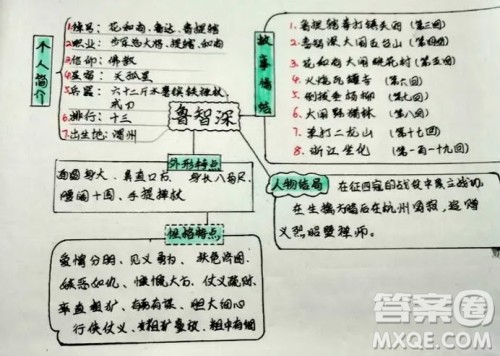 个人简介
1.绰号：花和尚、鲁达、鲁提辖
2.职业：步军总大将、提辖、和尚
3.信仰：佛教
4.星宿：天孤星
5.兵器：六十二斤水磨镔铁禅杖
戒刀
6.排行：十三
7.出生地：渭州
故事情结
1.鲁提辖拳打镇关西（第三回）
2.鲁智深大闹五台山（第四回）
3.花和尚大闹桃花村（第五回）
4.火烧瓦罐寺（第六回）
5.倒拔垂杨柳（第七回）
6.大闹野猪林（第八回）
7.单打二龙山（第十七回）
8.浙江坐化（第一百一十九回）
鲁智深
外形特点
面圆身大、鼻直口方、身长八尺
腰阔十围、手提禅杖
人物结局
在征四寇的战役中屡立战功，
在生擒方腊后在杭州圆寂，追赠
义烈昭暨禅师。
性格特点
爱憎分明、见义勇为、
嫉恶如仇、慷慨大方、仗义疏财、
率直粗犷、有勇有谋、胆大细心
行侠仗义、粗中有细
答案圈
MXQE.COM